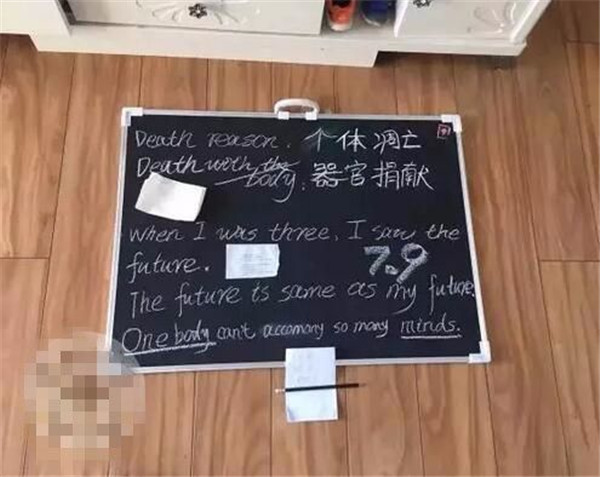 Death reason. 个体凋亡
Death with the body. 器官捐献
When I was three, I saw the
future. 7.9
The future is same as my future.
One body can't accomony so many minds.